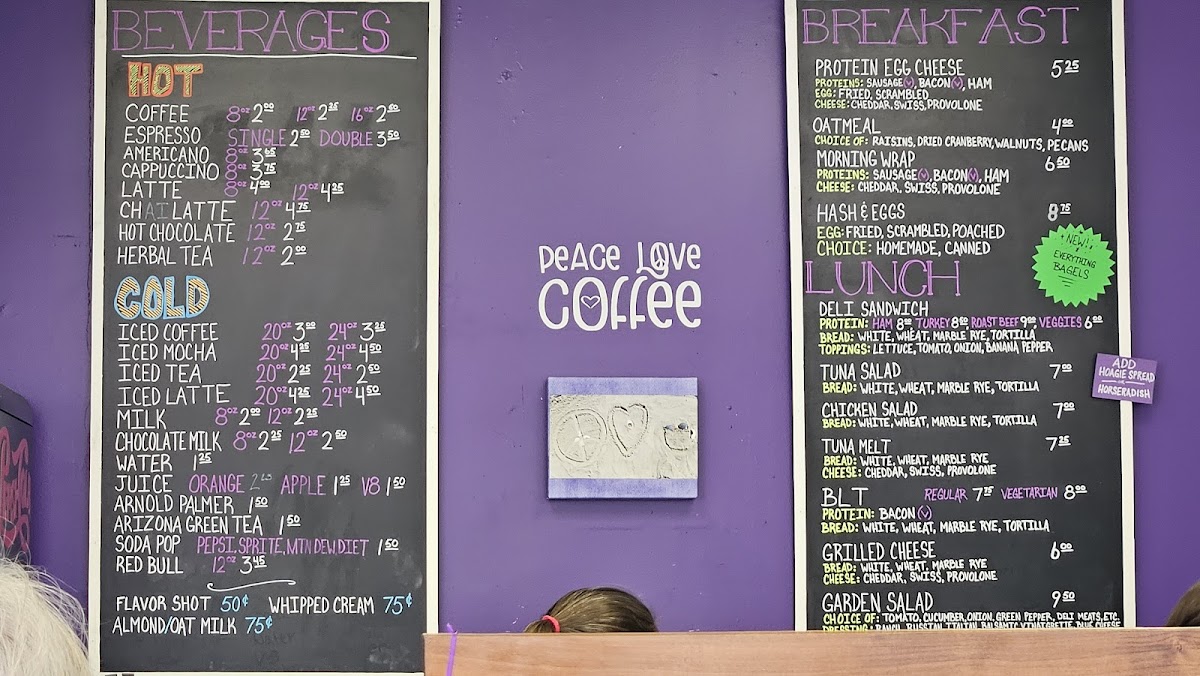 BEVERAGES
HOT
COFFEE 8oz 2.00 12oz 2.25 16oz 2.50
ESPRESSO SINGLE 2.50 DOUBLE 3.50
AMERICANO 8oz 3.65
CAPPUCCINO 8oz 3.75
LATTE 8oz 4.00 12oz 4.25
CHAI LATTE 12oz 4.75
HOT CHOCOLATE 12oz 2.75
HERBAL TEA 12oz 2.00
COLD
ICED COFFEE 20oz 3.00 24oz 3.25
ICED MOCHA 20oz 4.25 24oz 4.50
ICED TEA 20oz 2.25 24oz 2.50
ICED LATTE 20oz 4.25 24oz 4.50
MILK 8oz 2.00 12oz 2.25
CHOCOLATE MILK 8oz 2.25 12oz 2.50
WATER 1.25
JUICE ORANGE APPLE 1.25 V8 1.50
ARNOLD PALMER 1.50
ARIZONA GREEN TEA 1.50
SODA POP PEPSI, SPRITE, MTN DEW, DIET 1.50
RED BULL 12oz 3.45
FLAVOR SHOT 50¢ WHIPPED CREAM 75¢
ALMOND/OAT MILK 75¢
PEACE LOVE
COFFEE
BREAKFAST
PROTEIN EGG CHEESE 5.25
PROTEINS: SAUSAGE(V), BACON(V), HAM
EGG: FRIED, SCRAMBLED
CHEESE: CHEDDAR, SWISS, PROVOLONE
OATMEAL 4.00
CHOICE OF: RAISINS, DRIED CRANBERRY, WALNUTS, PECANS
MORNING WRAP 6.50
PROTEINS: SAUSAGE(V), BACON(V), HAM
CHEESE: CHEDDAR, SWISS, PROVOLONE
HASH & EGGS 8.75
EGG: FRIED, SCRAMBLED, POACHED
CHOICE: HOMEMADE, CANNED
NEW!
EVERYTHING
BAGELS
LUNCH
DELI SANDWICH
PROTEIN: HAM 8.00 TURKEY 8.50, ROAST BEEF 9.00, VEGGIES 6.00
BREAD: WHITE, WHEAT, MARBLE RYE, TORTILLA
TOPPINGS: LETTUCE, TOMATO, ONION, BANANA PEPPER
TUNA SALAD 7.00
BREAD: WHITE, WHEAT, MARBLE RYE, TORTILLA
ADD
HOAGIE SPREAD
OR
HORSERADISH
CHICKEN SALAD 7.00
BREAD: WHITE, WHEAT, MARBLE RYE, TORTILLA
TUNA MELT 7.25
BREAD: WHITE, WHEAT, MARBLE RYE
CHEESE: CHEDDAR, SWISS, PROVOLONE
BLT REGULAR 7.25 VEGETARIAN 8.00
PROTEIN: BACON (V)
BREAD: WHITE, WHEAT, MARBLE RYE, TORTILLA
GRILLED CHEESE 6.00
BREAD: WHITE, WHEAT, MARBLE RYE
CHEESE: CHEDDAR, SWISS, PROVOLONE
GARDEN SALAD 9.50
CHOICE OF: TOMATO, CUCUMBER, ONION, GREEN PEPPER, DELI MEATS, ETC.
DRESSING: RANCH, RUSSIAN, ITALIAN, BALSAMIC VINAIGRETTE, BLUE CHEESE